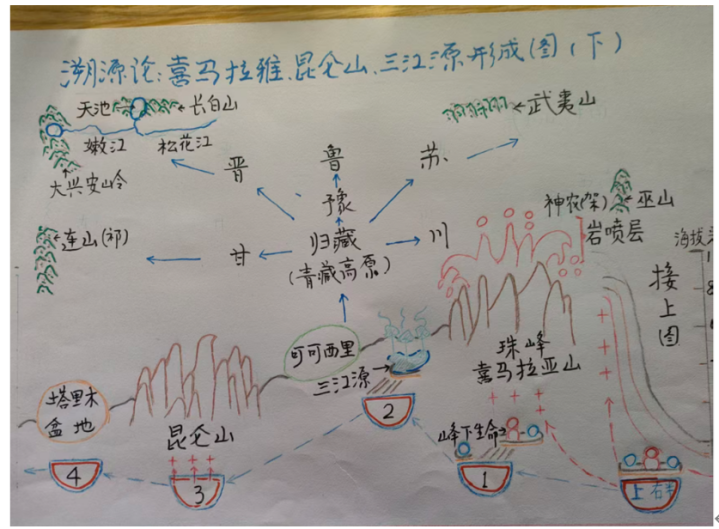 溯源论:喜马拉雅、昆仑山、三江源形成(图)(下)
天池 ←长白山
嫩江 松花江
大兴安岭
←武夷山
晋 鲁 苏
豫
神农(架) ←巫山
岩喷层
海拔
←连山(祁)
甘 归藏 川
(青藏高原)
接上图
可可西里
三江源→
珠峰
喜马拉亚山
塔里木
盆地
昆仑山
峰下生命→
4 3 2 1 上右